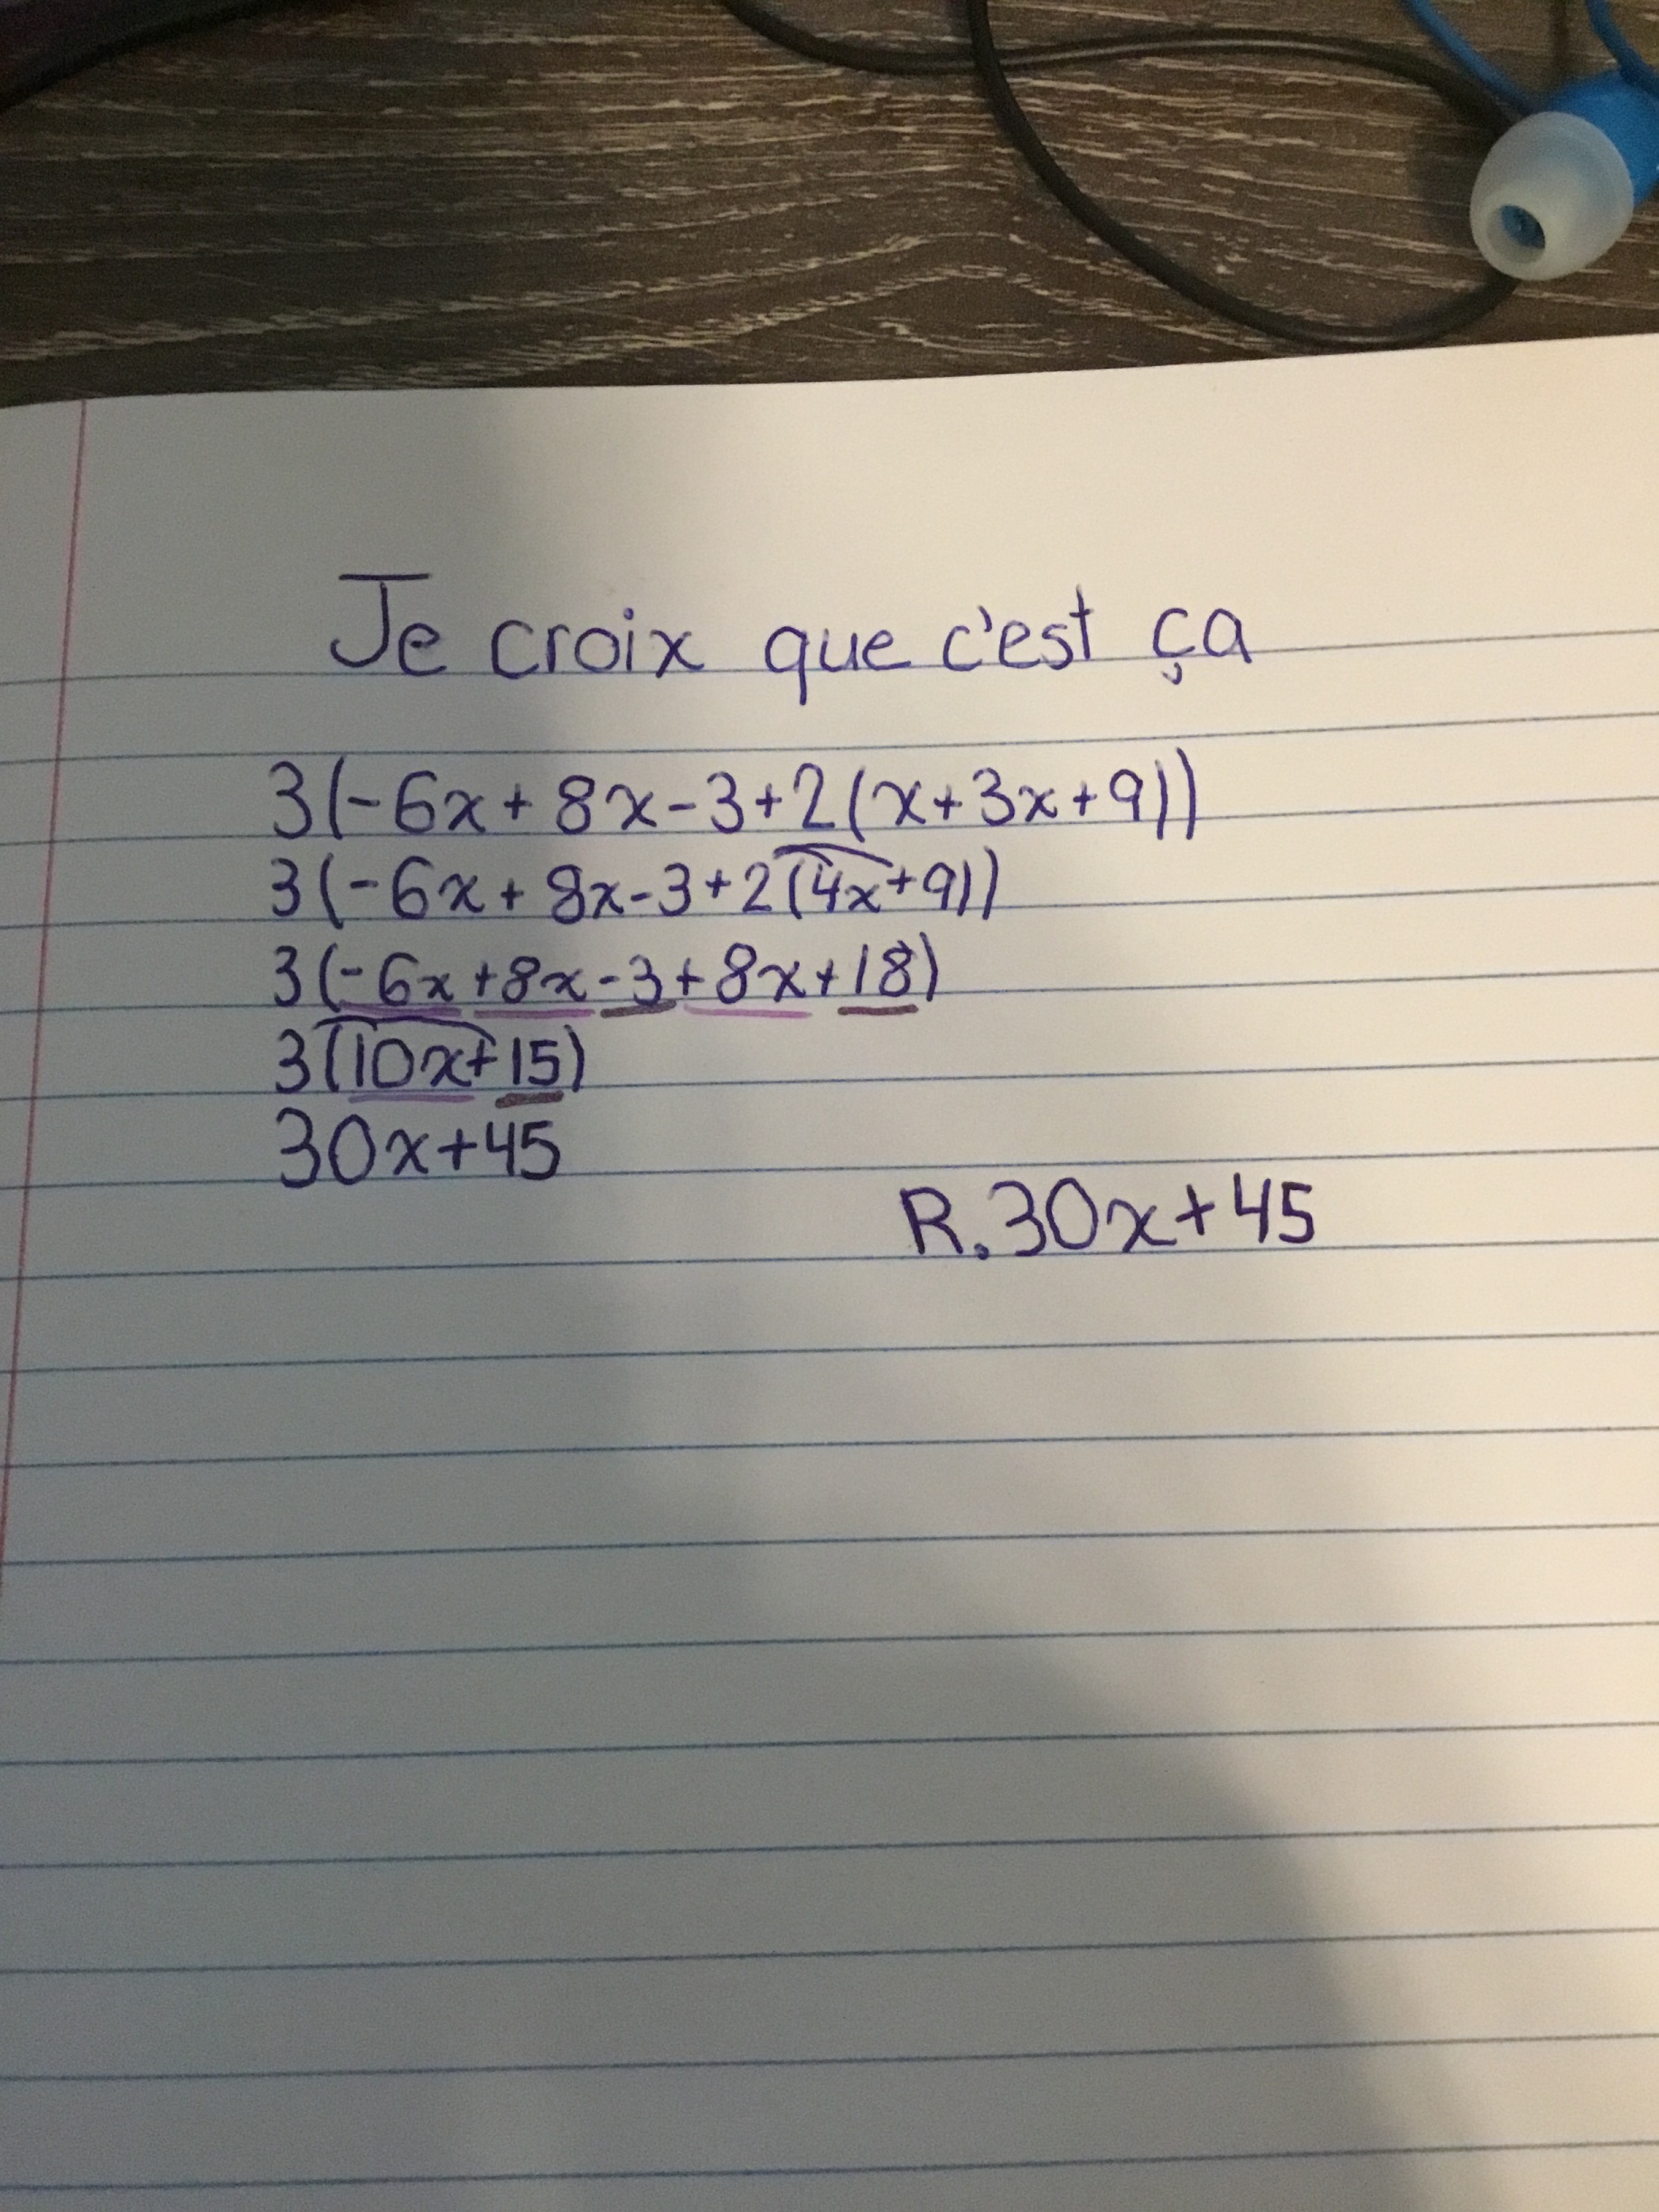 Je croix que c'est ça
3(-6x+8x-3+2(x+3x+9))
3(-6x+8x-3+2(4x+9))
3(-6x+8x-3+8x+18)
3(10x+15)
30x+45
R.30x+45